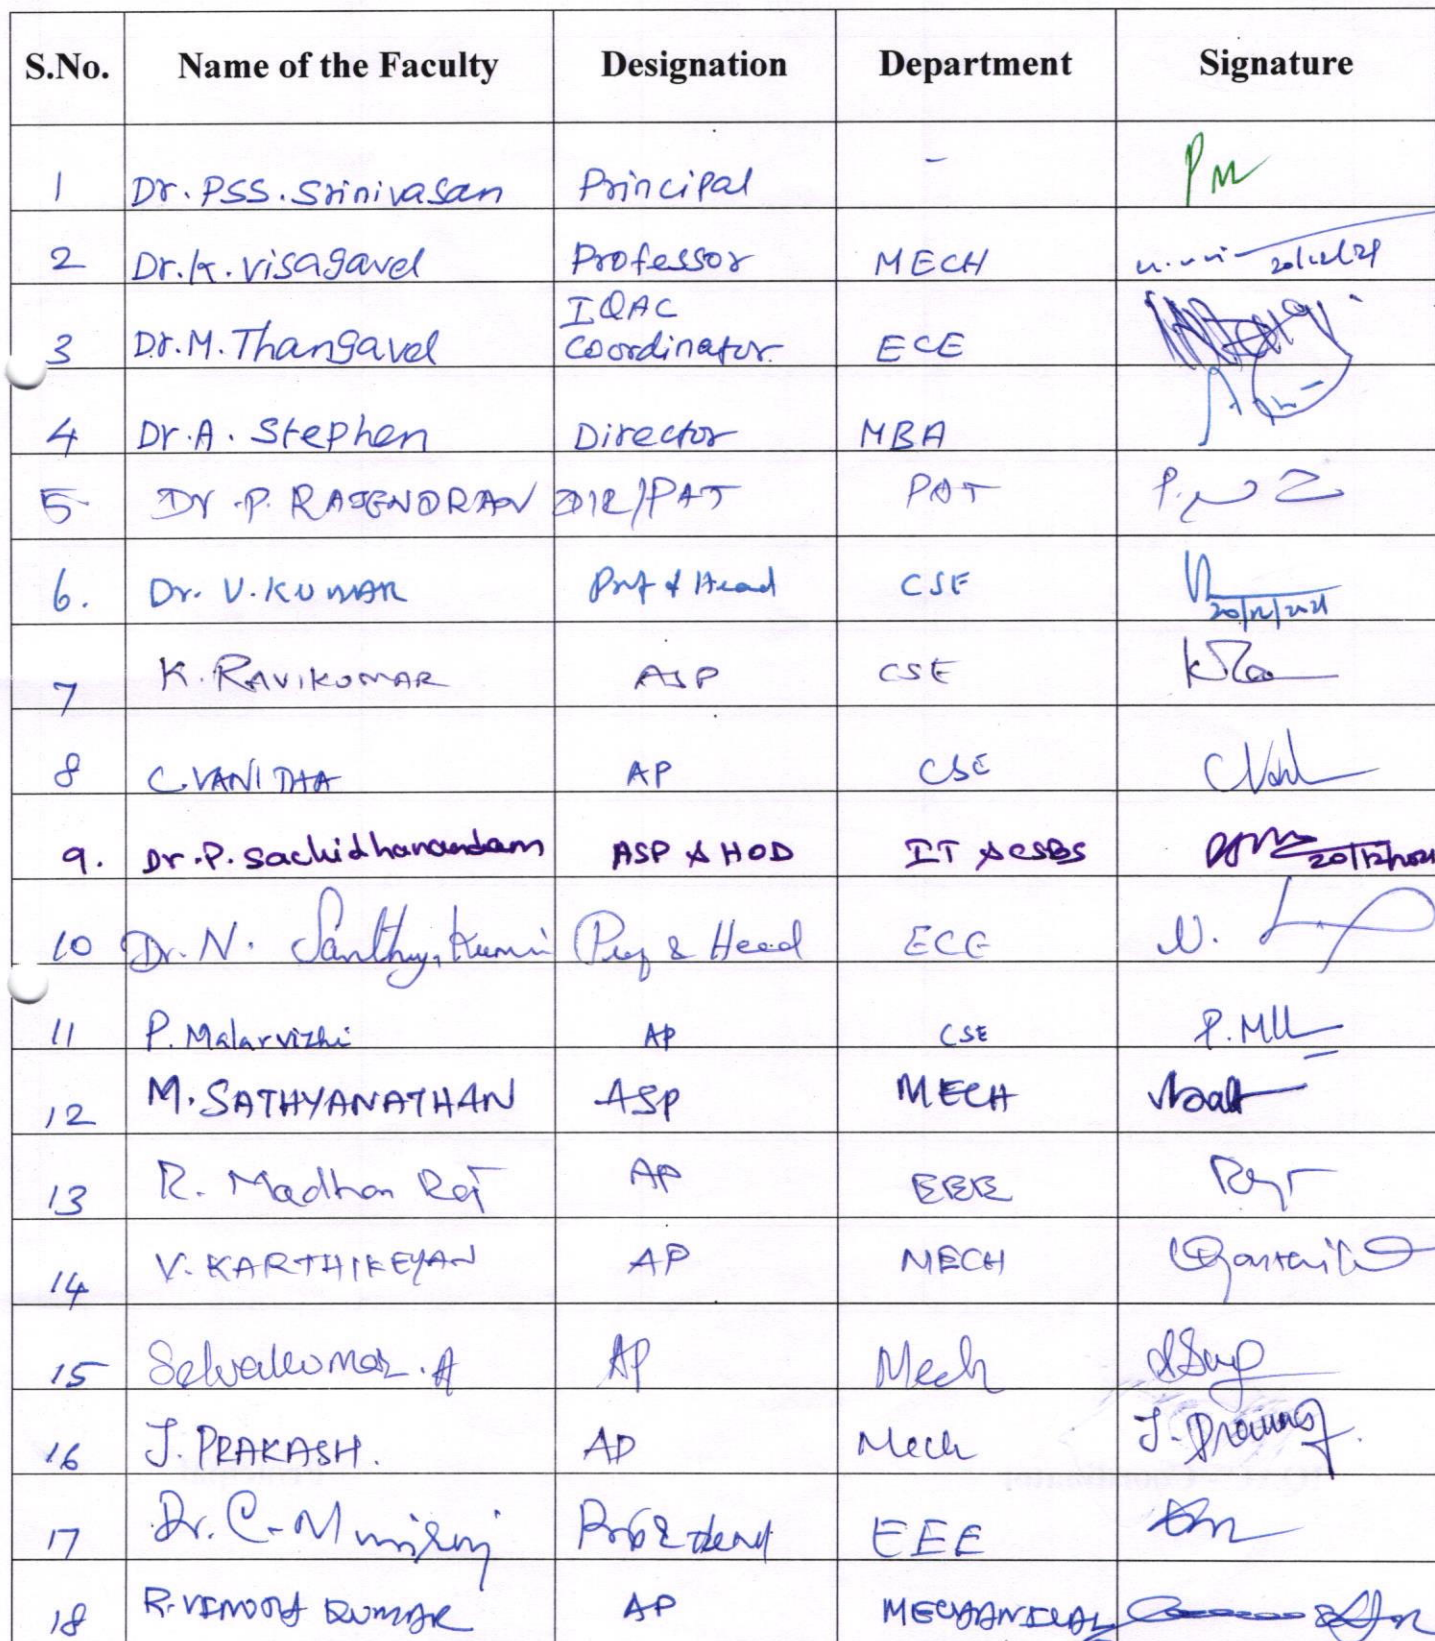 S.No. Name of the Faculty Designation Department Signature
1 Dr. PSS. Srinivasan Principal -
2 Dr. K. Visagavel Professor MECH 20/12/21
3 Dr. M. Thangavel IQAC Coordinator. ECE
4 Dr. A. Stephen Director MBA
5 Dr. P. RAJENDRAN DIR/PAT PAT
6. Dr. V. KUMAR Prof & Head CSE 20/12/2021
7 K. RAVIKUMAR ASP CSE
8 C. VANITHA AP CSE
9. Dr. P. Sachidhanandam ASP & HOD IT & CSBS 20/12/2021
10 Dr. N. Prof & Head ECE N.
11 P. Malarvizhi AP CSE
12 M. SATHYANATHAN ASP MECH
13 R. Madhan Raj AP EEE
14 V. KARTHIKEYAN AP MECH
15 Selvakumar. A AP Mech
16 J. PRAKASH. AP Mech
17 Dr. C. Muniraj Prof & Head EEE
18 R. VINOTH KUMAR AP MECHANICAL